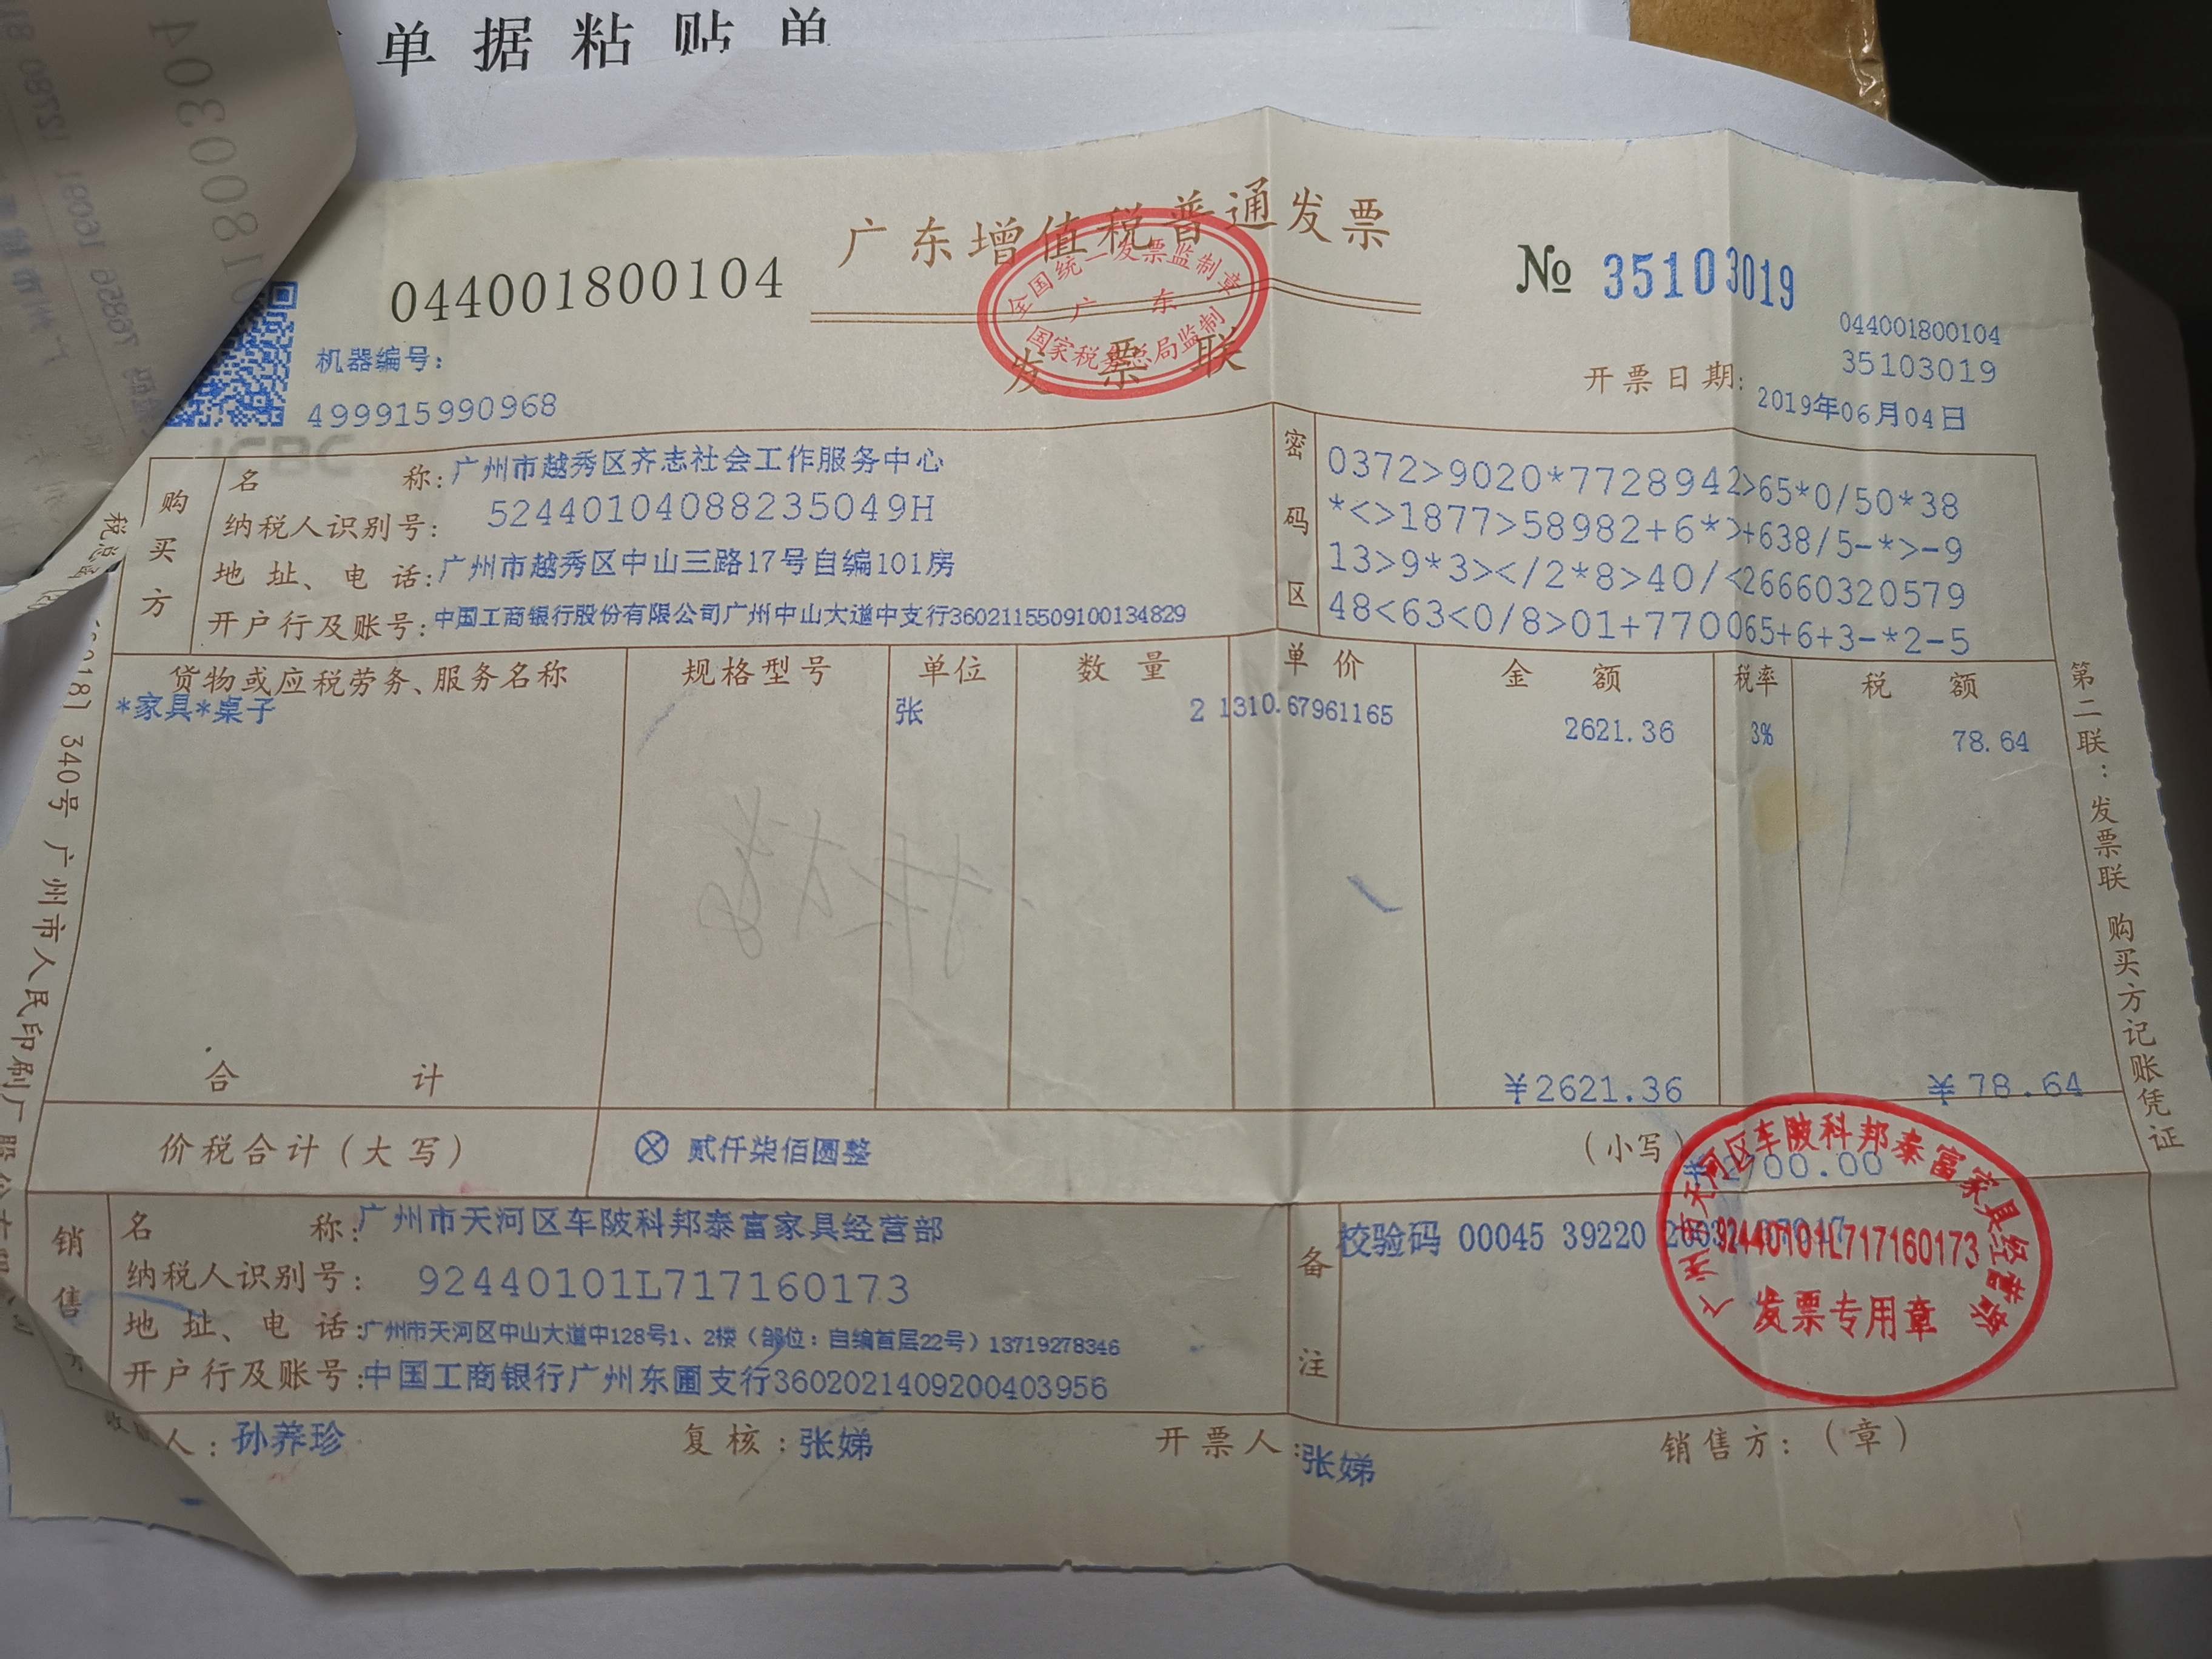 单据粘贴单
广东增值税普通发票
044001800104
全国统一发票监制章
广东
国家税务总局监制
发票联
№ 35103019
044001800104
35103019
机器编号:
499915990968
开票日期: 2019年06月04日
ICBC
购买方
名称: 广州市越秀区齐志社会工作服务中心
纳税人识别号: 52440104088235049H
地址、电话: 广州市越秀区中山三路17号自编101房
开户行及账号: 中国工商银行股份有限公司广州中山大道中支行3602115509100134829
密码区
0372>9020*7728942>65*0/50*38
*<>1877>58982+6*>+638/5-*>-9
13>9*3></2*8>40/<26660320579
48<63<0/8>01+770065+6+3-*2-5
货物或应税劳务、服务名称 规格型号 单位 数量 单价 金额 税率 税额
*家具*桌子 张 2 1310.67961165 2621.36 3% 78.64
合计 ¥2621.36 ¥78.64
价税合计(大写) ⊗ 贰仟柒佰圆整 (小写) ¥2700.00
销售方
名称: 广州市天河区车陂科邦泰富家具经营部
纳税人识别号: 92440101L717160173
地址、电话: 广州市天河区中山大道中128号1、2楼(部位:自编首层22号)13719278346
开户行及账号: 中国工商银行广州东圃支行3602021409200403956
备注
校验码 00045 39220
广州市天河区车陂科邦泰富家具经营部
92440101L717160173
发票专用章
人: 孙养珍 复核: 张娣 开票人: 张娣 销售方:(章)
第二联:发票联 购买方记账凭证
340号 广州市人民印刷厂股份有限公司